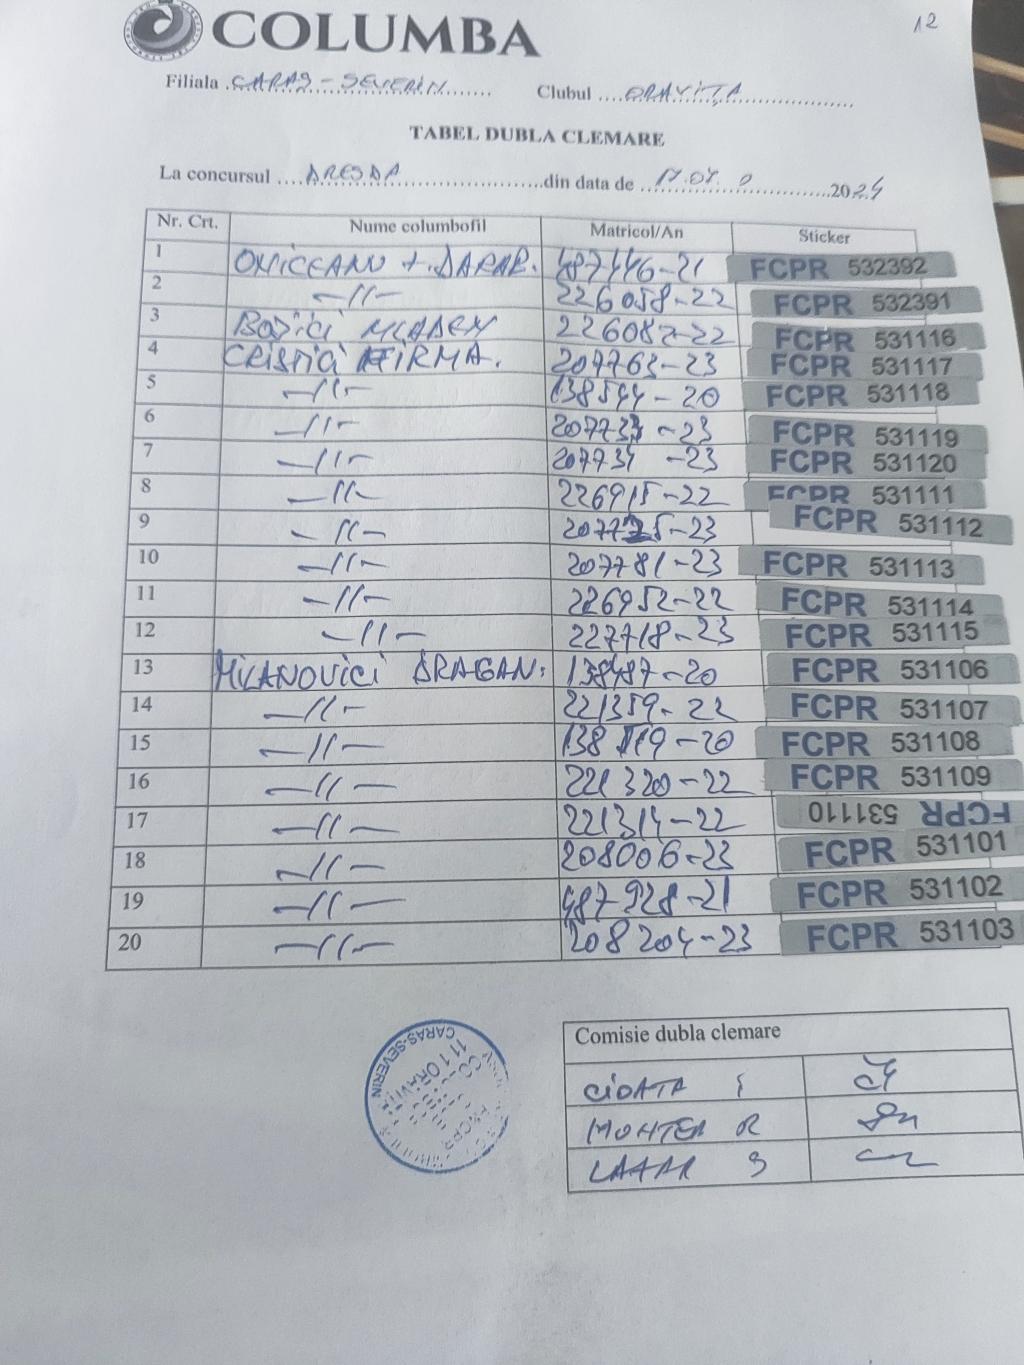 12
COLUMBA
Filiala CARAS-SEVERIN Clubul ORAVIȚA
TABEL DUBLA CLEMARE
La concursul DRESDA din data de 17.07. 2024
Nr. Crt. Nume columbofil Matricol/An Sticker
1 487446-21 FCPR 532392
2 -//- 226058-22 FCPR 532391
3 BOSICI MLADEN 226082-22 FCPR 531116
4 CRISTICI FIRMA. 207763-23 FCPR 531117
5 -//- 138544-20 FCPR 531118
6 -//- 207733-23 FCPR 531119
7 -//- 207734-23 FCPR 531120
8 -//- 226915-22 FCPR 531111
9 -//- 207725-23 FCPR 531112
10 -//- 207781-23 FCPR 531113
11 -//- 226952-22 FCPR 531114
12 -//- 227718-23 FCPR 531115
13 MILANOVICI DRAGAN. 138487-20 FCPR 531106
14 -//- 221359-22 FCPR 531107
15 -//- 138519-20 FCPR 531108
16 -//- 221320-22 FCPR 531109
17 -//- 221314-22 FCPR 531110
18 -//- 208006-23 FCPR 531101
19 -//- 487928-21 FCPR 531102
20 -//- 208204-23 FCPR 531103
CARAS-SEVERIN
111 ORAVITA
FNCPR
Comisie dubla clemare
CIOATA I
MOHTEA R
LAZAR S